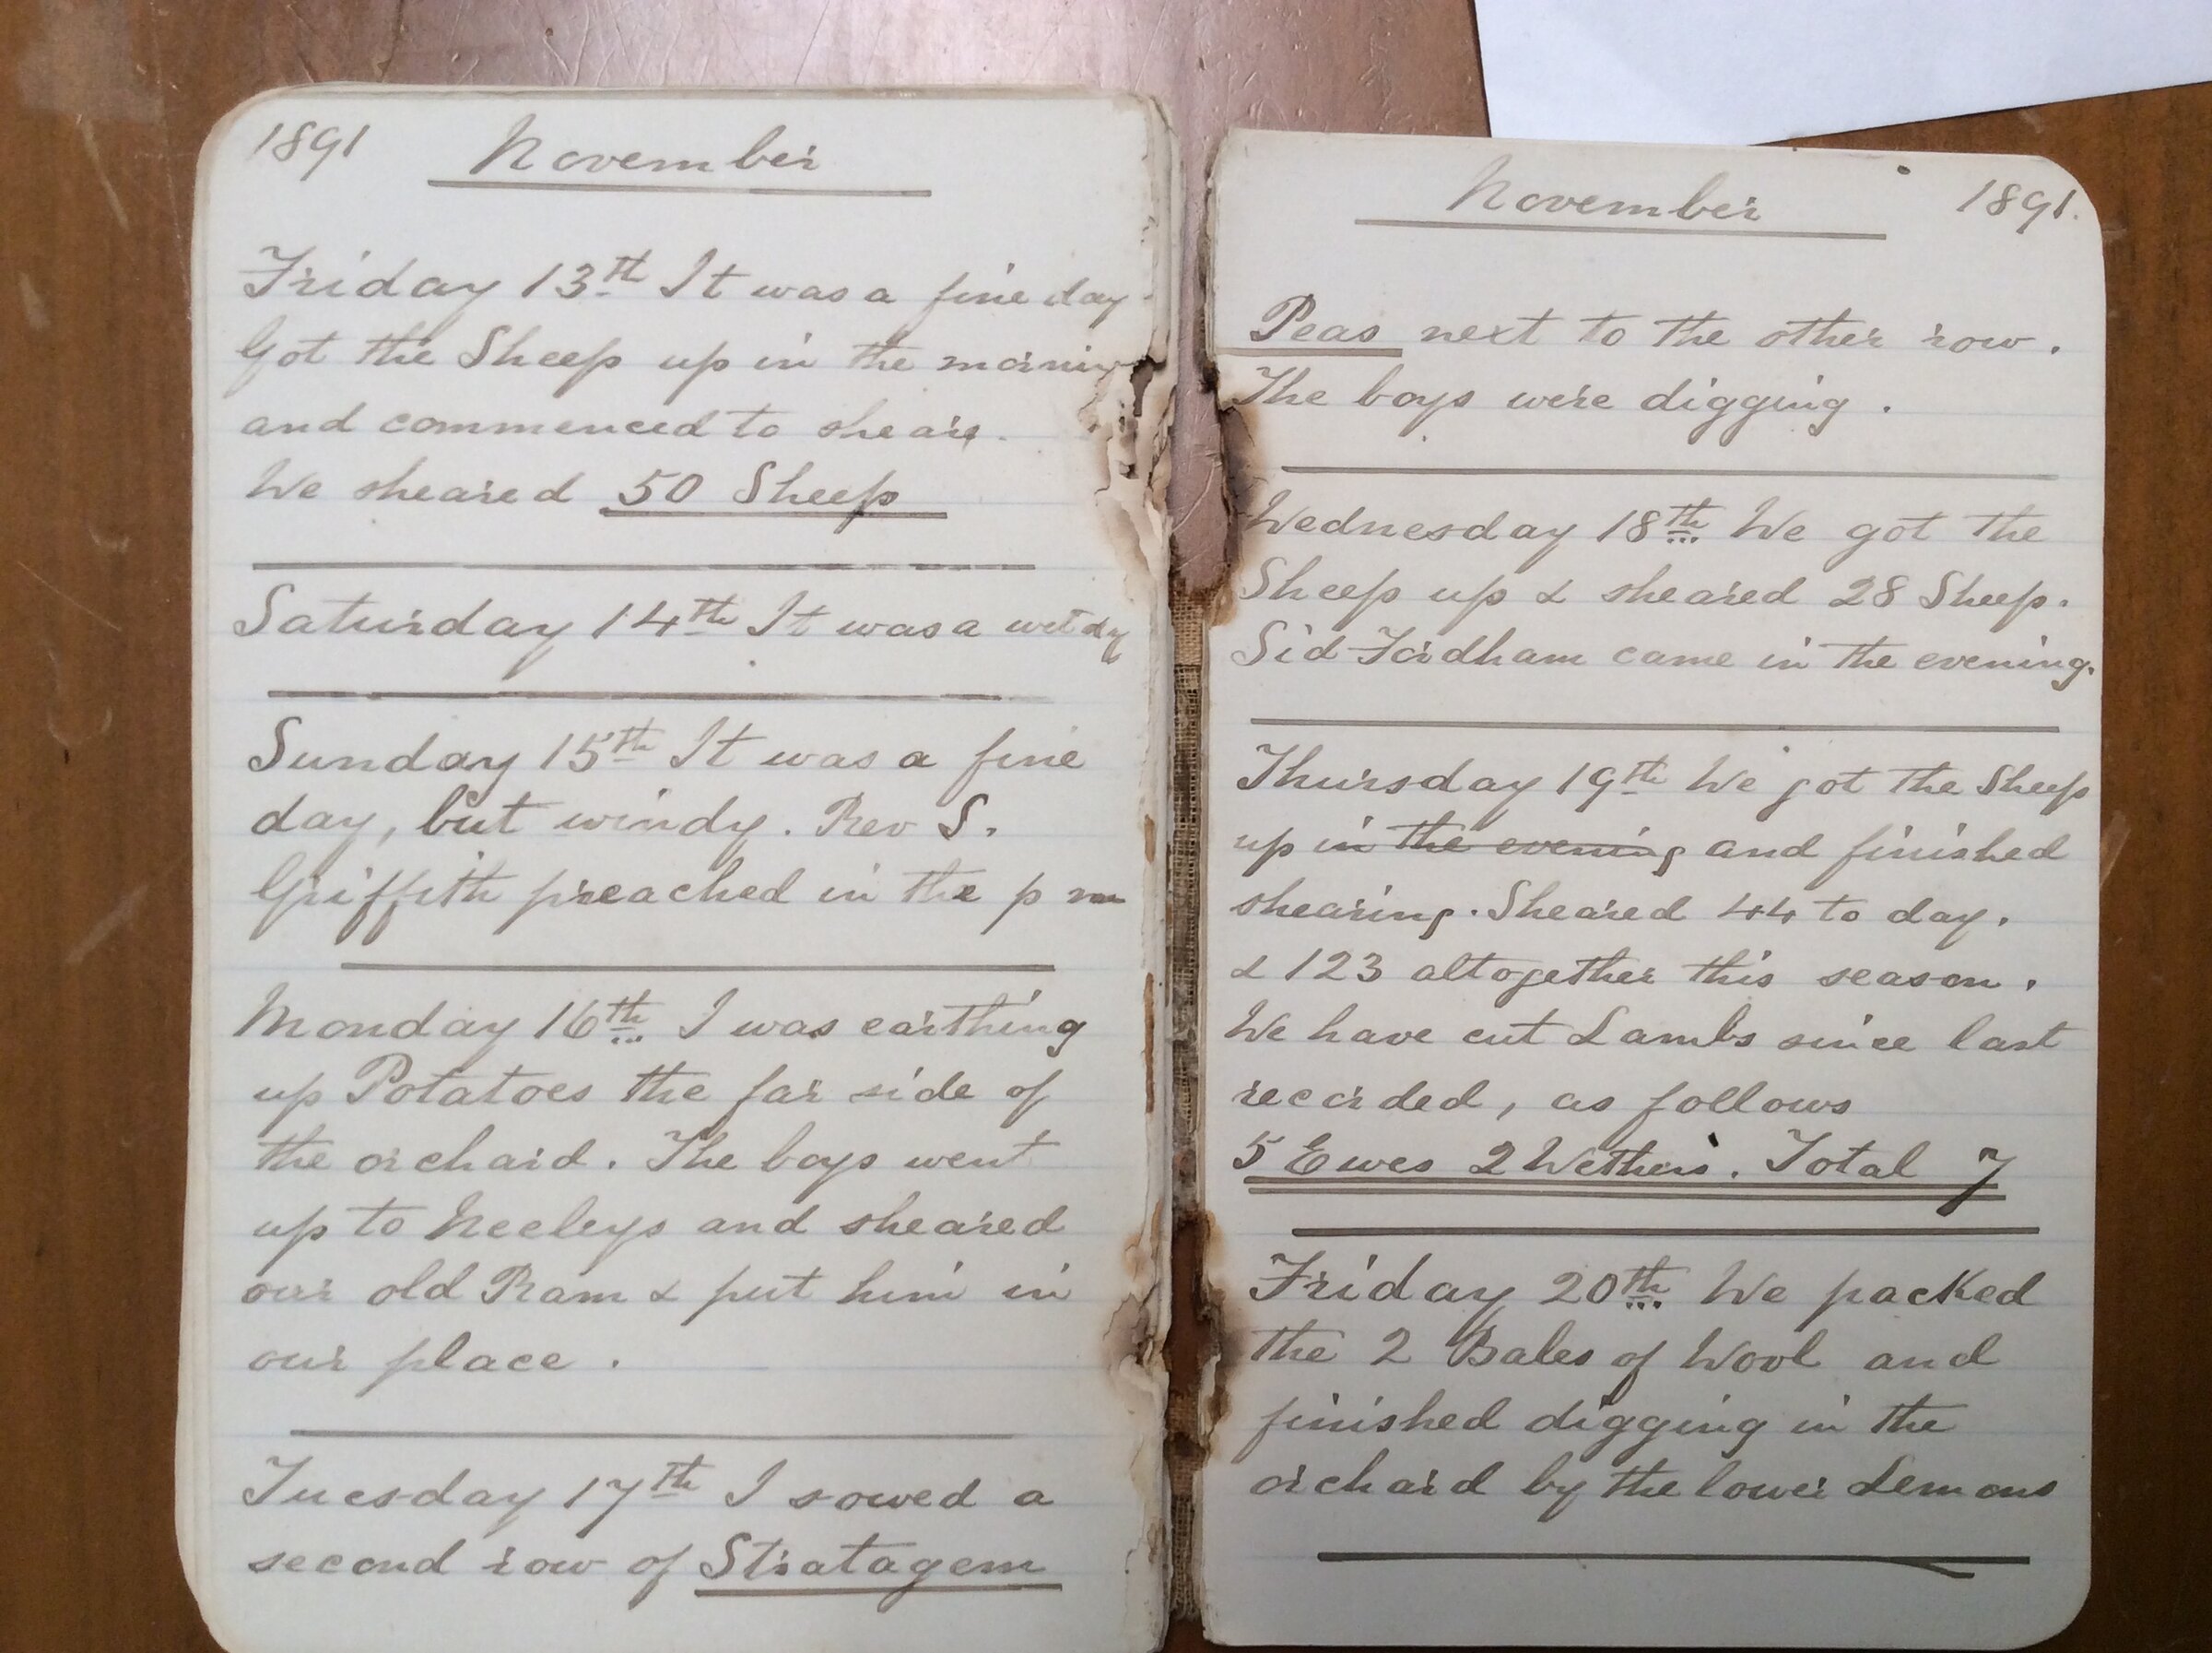 1891 November
Friday 13th It was a fine day.
Got the Sheep up in the mornin
and commenced to sheare.
We sheared 50 Sheep
Saturday 14th It was a wet day
Sunday 15th It was a fine
day, but windy. Rev S.
Griffith preached in the p m
Monday 16th I was earthing
up Potatoes the far side of
the orchard. The boys went
up to Neeleys and sheared
our old Ram & put him in
our place.
Tuesday 17th I sowed a
second row of Stratagem
November 1891.
Peas next to the other row.
The boys were digging.
Wednesday 18th We got the
Sheep up & sheared 28 Sheep.
Sid Fordham came in the evening.
Thursday 19th We got the Sheep
up in the evening and finished
shearing. Sheared 44 to day.
& 123 altogether this season.
We have cut Lambs since last
recorded, as follows
5 Ewes 2 Wethers. Total 7
Friday 20th We packed
the 2 Bales of Wool and
finished digging in the
orchard by the lower Lemons